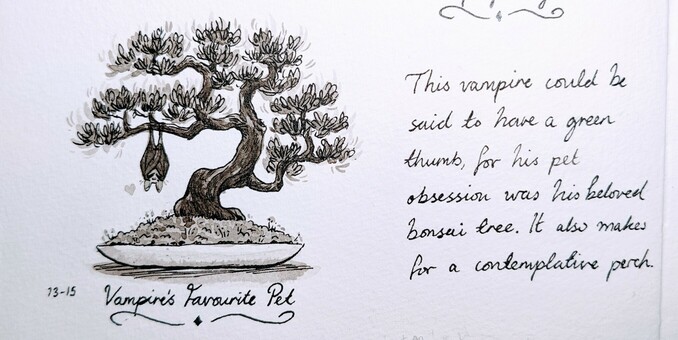 13-15
Vampire's Favourite Pet
This vampire could be
said to have a green
thumb, for his pet
obsession was his beloved
bonsai tree. It also makes
for a contemplative perch.